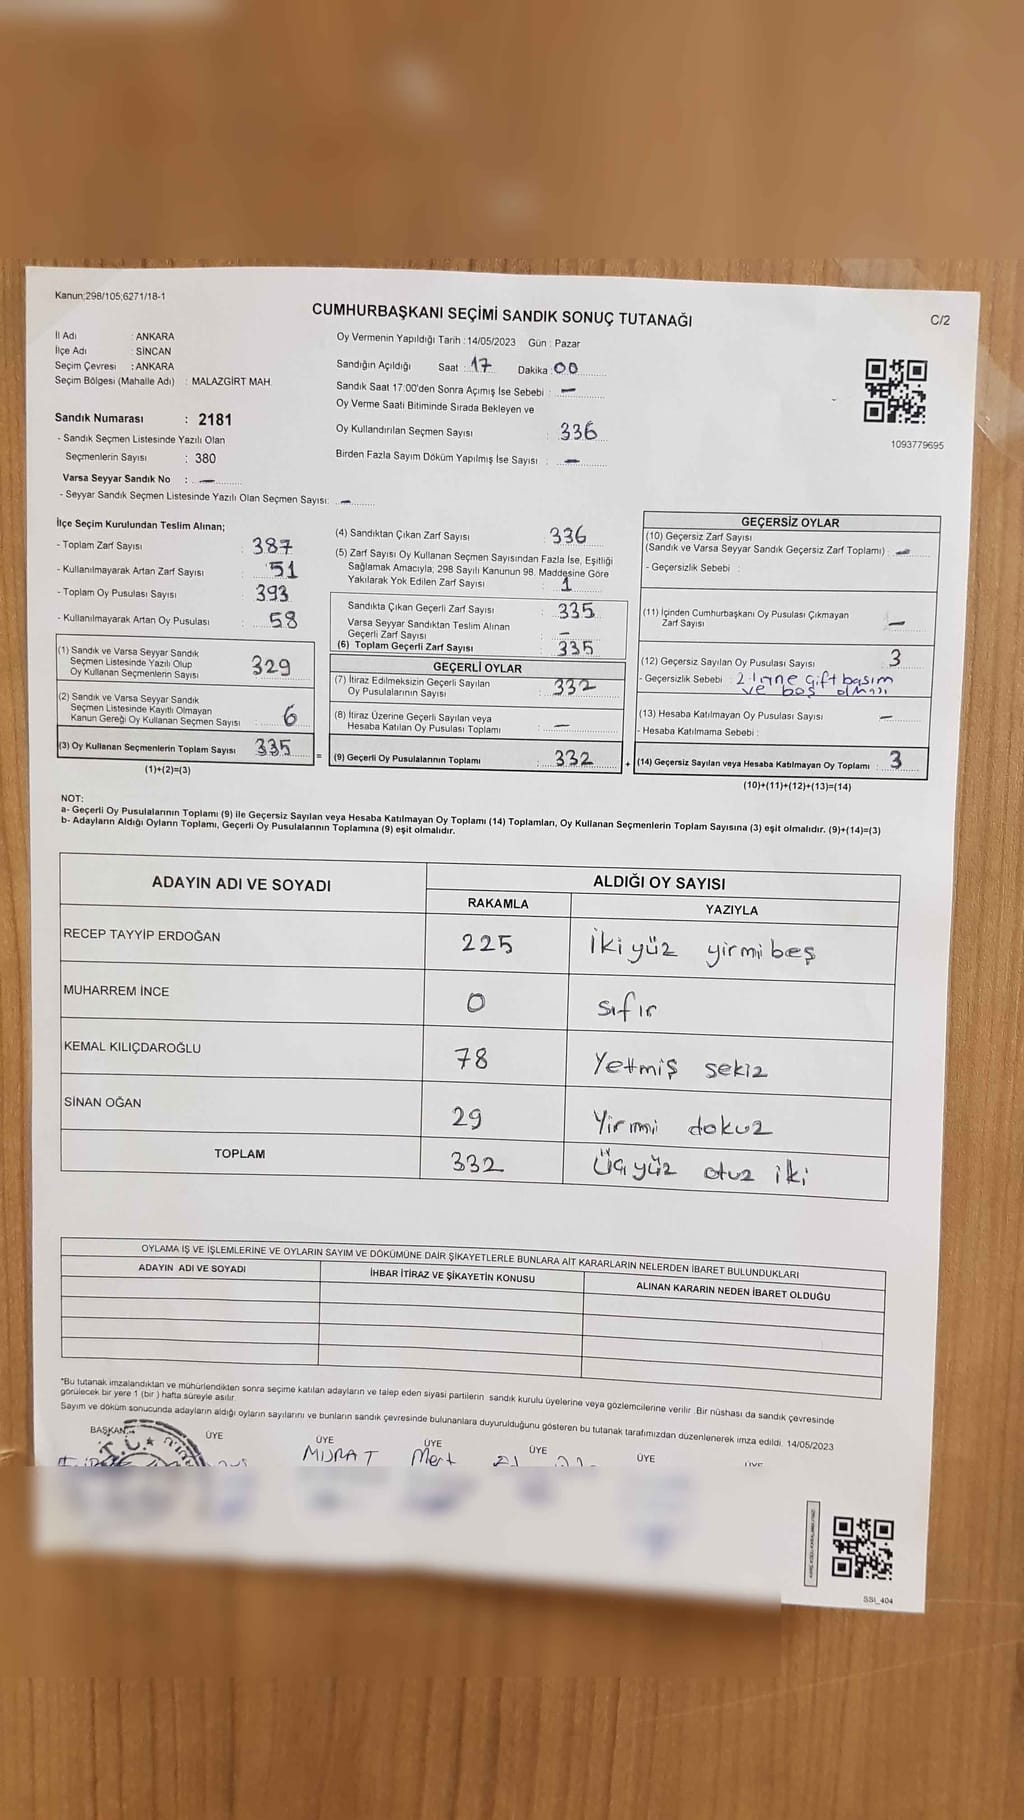 Kanun;298/105;6271/18-1
CUMHURBAŞKANI SEÇİMİ SANDIK SONUÇ TUTANAĞI
C/2
İl Adı : ANKARA
İlçe Adı : SİNCAN
Seçim Çevresi : ANKARA
Seçim Bölgesi (Mahalle Adı) : MALAZGİRT MAH.
Oy Vermenin Yapıldığı Tarih : 14/05/2023 Gün : Pazar
Sandığın Açıldığı Saat : 17 Dakika : 00
Sandık Saat 17:00'den Sonra Açımış İse Sebebi : —
Oy Verme Saati Bitiminde Sırada Bekleyen ve
Oy Kullandırılan Seçmen Sayısı : 336
Birden Fazla Sayım Döküm Yapılmış İse Sayısı : —
1093779695
Sandık Numarası : 2181
- Sandık Seçmen Listesinde Yazılı Olan
Seçmenlerin Sayısı : 380
Varsa Seyyar Sandık No : —
- Seyyar Sandık Seçmen Listesinde Yazılı Olan Seçmen Sayısı: —
İlçe Seçim Kurulundan Teslim Alınan;
- Toplam Zarf Sayısı : 387
- Kullanılmayarak Artan Zarf Sayısı : 51
- Toplam Oy Pusulası Sayısı : 393
- Kullanılmayarak Artan Oy Pusulası : 58
(1) Sandık ve Varsa Seyyar Sandık
Seçmen Listesinde Yazılı Olup
Oy Kullanan Seçmenlerin Sayısı : 329
(2) Sandık ve Varsa Seyyar Sandık
Seçmen Listesinde Kayıtlı Olmayan
Kanun Gereği Oy Kullanan Seçmen Sayısı : 6
(3) Oy Kullanan Seçmenlerin Toplam Sayısı : 335
(1)+(2)=(3)
(4) Sandıktan Çıkan Zarf Sayısı : 336
(5) Zarf Sayısı Oy Kullanan Seçmen Sayısından Fazla İse, Eşitliği
Sağlamak Amacıyla, 298 Sayılı Kanunun 98. Maddesine Göre
Yakılarak Yok Edilen Zarf Sayısı : 1
Sandıkta Çıkan Geçerli Zarf Sayısı : 335
Varsa Seyyar Sandıktan Teslim Alınan
Geçerli Zarf Sayısı : —
(6) Toplam Geçerli Zarf Sayısı : 335
GEÇERLİ OYLAR
(7) İtiraz Edilmeksizin Geçerli Sayılan
Oy Pusulalarının Sayısı : 332
(8) İtiraz Üzerine Geçerli Sayılan veya
Hesaba Katılan Oy Pusulası Toplamı : —
= (9) Geçerli Oy Pusulalarının Toplamı : 332
GEÇERSİZ OYLAR
(10) Geçersiz Zarf Sayısı
(Sandık ve Varsa Seyyar Sandık Geçersiz Zarf Toplamı) : —
- Geçersizlik Sebebi :
(11) İçinden Cumhurbaşkanı Oy Pusulası Çıkmayan
Zarf Sayısı : —
(12) Geçersiz Sayılan Oy Pusulası Sayısı : 3
- Geçersizlik Sebebi : çift basım
ve boş olması
(13) Hesaba Katılmayan Oy Pusulası Sayısı : —
- Hesaba Katılmama Sebebi :
+ (14) Geçersiz Sayılan veya Hesaba Katılmayan Oy Toplamı : 3
(10)+(11)+(12)+(13)=(14)
NOT:
a- Geçerli Oy Pusulalarının Toplamı (9) ile Geçersiz Sayılan veya Hesaba Katılmayan Oy Toplamı (14) Toplamları, Oy Kullanan Seçmenlerin Toplam Sayısına (3) eşit olmalıdır. (9)+(14)=(3)
b- Adayların Aldığı Oyların Toplamı, Geçerli Oy Pusulalarının Toplamına (9) eşit olmalıdır.
ADAYIN ADI VE SOYADI
ALDIĞI OY SAYISI
RAKAMLA YAZIYLA
RECEP TAYYİP ERDOĞAN 225 İkiyüz yirmi beş
MUHARREM İNCE 0 sıfır
KEMAL KILIÇDAROĞLU 78 Yetmiş sekiz
SİNAN OĞAN 29 Yirmi dokuz
TOPLAM 332 Üçyüz otuz iki
OYLAMA İŞ VE İŞLEMLERİNE VE OYLARIN SAYIM VE DÖKÜMÜNE DAİR ŞİKAYETLERLE BUNLARA AİT KARARLARIN NELERDEN İBARET BULUNDUKLARI
ADAYIN ADI VE SOYADI İHBAR İTİRAZ VE ŞİKAYETİN KONUSU ALINAN KARARIN NEDEN İBARET OLDUĞU
*Bu tutanak imzalandıktan ve mühürlendikten sonra seçime katılan adayların ve talep eden siyasi partilerin sandık kurulu üyelerine veya gözlemcilerine verilir. Bir nüshası da sandık çevresinde
görülecek bir yere 1 (bir) hafta süreyle asılır.
Sayım ve döküm sonucunda adayların aldığı oyların sayılarını ve bunların sandık çevresinde bulunanlara duyurulduğunu gösteren bu tutanak tarafımızdan düzenlenerek imza edildi. 14/05/2023
BAŞKAN ÜYE ÜYE ÜYE ÜYE ÜYE ÜYE
T.C.
MURAT Mert
SSI_404